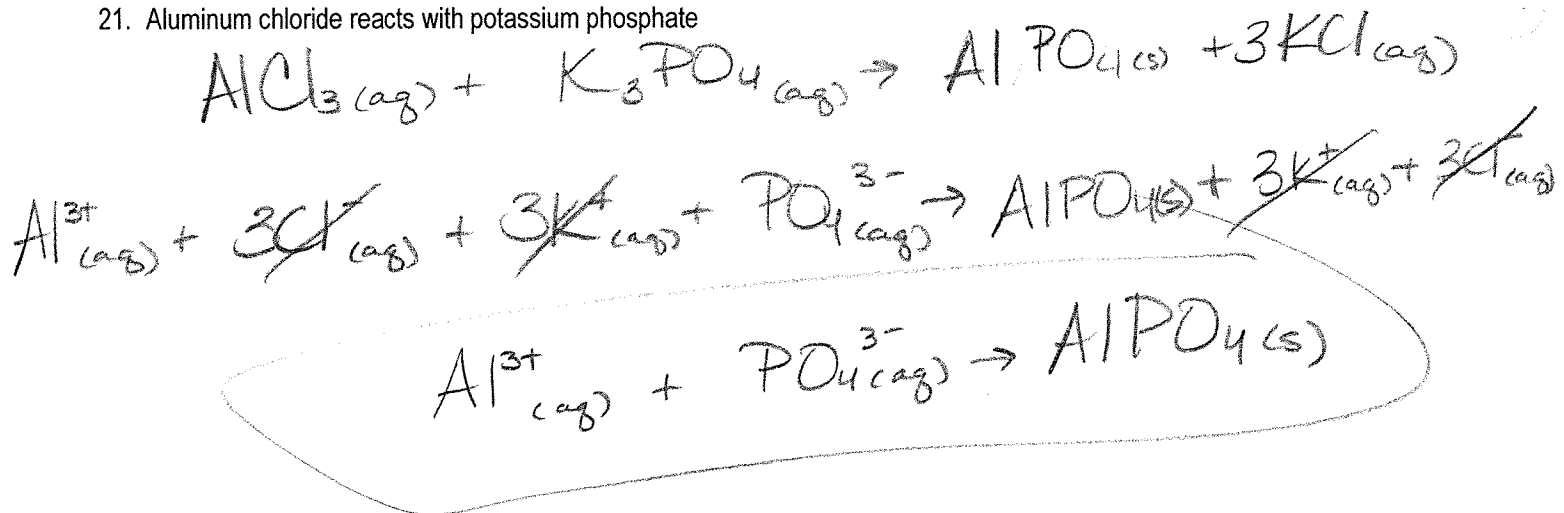 21. Aluminum chloride reacts with potassium phosphate
AlCl₃(aq) + K₃PO₄(aq) → AlPO₄(s) + 3KCl(aq)
Al³⁺(aq) + 3Cl⁻(aq) + 3K⁺(aq) + PO₄³⁻(aq) → AlPO₄(s) + 3K⁺(aq) + 3Cl⁻(aq)
Al³⁺(aq) + PO₄³⁻(aq) → AlPO₄(s)